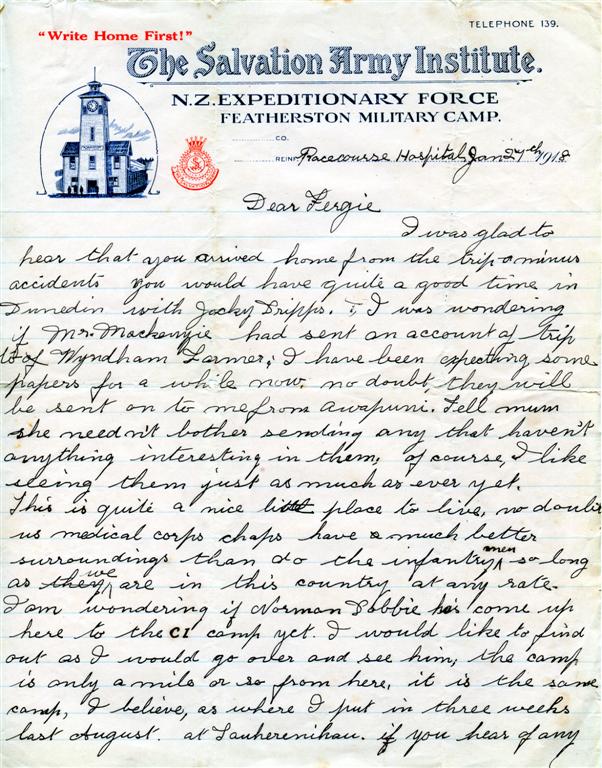 TELEPHONE 139.
"Write Home First!"
The Salvation Army Institute.
N.Z. EXPEDITIONARY FORCE
FEATHERSTON MILITARY CAMP.
CO.
REINF. Racecourse Hospital, Jan 24th 1918
Dear Fergie
I was glad to
hear that you arrived home from the trip minus
accidents you would have quite a good time in
Dunedin with Jocky Dripps. I was wondering
if Mr. Mackenzie had sent an account of trip
to Wyndham Farmer; I have been expecting some
papers for a while now, no doubt, they will
be sent on to me from Awapuni. Tell mum
she needn't bother sending any that haven't
anything interesting in them, of course, I like
seeing them just as much as ever yet.
This is quite a nice little place to live, no doubt
us medical corps chaps have a much better
surroundings than do the infantry men so long
as they we are in this country at any rate.
I am wondering if Norman Dobbie has come up
here to the C1 camp yet. I would like to find
out as I would go over and see him, the camp
is only a mile or so from here, it is the same
camp, I believe, as where I put in three weeks
last August. at Tauherenikau. if you hear of any